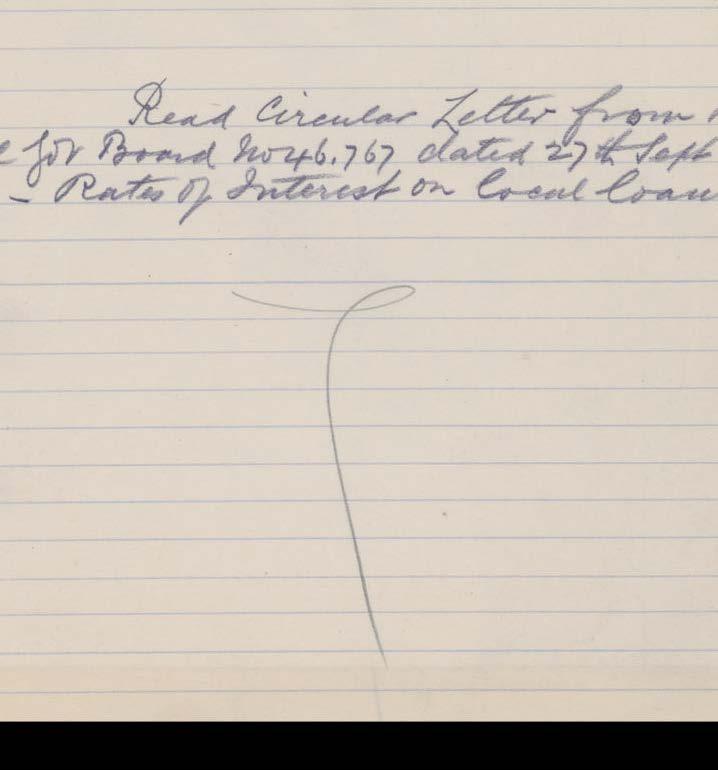 Read Circular Letter from
Gov Board No 46,767 dated 27th Sept
– Rates of Interest on Local Loan